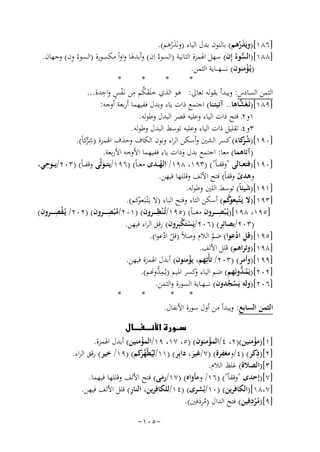 [١٨٦](وَيَذَرُهم) بالنون بدل الياء (ونَذَرُهم).
[١٨٨](السُّوءُ إن) سهل الهمزة الثانية (السوءُ إن) وأبدلها واواً مكسورة (السوءُ وِن) وجهان.
(يُؤمنون) نهاية الثمن.
* * * *
الثمن السادس: ويبدأ بقوله تعالى: هو الذي خلقكُم مِن نَفْسٍ واحدة...
[١٨٩](تَغَشَّاها.. آتيتنا) اجتمع ذات ياء وبدل ففيهما أربعة أوجه:
١و٢. فتح ذات الياء وعليه قصر البدل وطوله.
٣و٤. تقليل ذات الياء وعليه توسط البدل وطوله.
[١٩٠](شُركاءَ) كسر الشين وأسكن الراء ونون الكاف وحذف الهمزة (شِرْكاً).
(آتاهما) معاً: اجتمع بدل وذات ياء ففيهما الأوجه الأربعة.
[١٩٠](فتعالى "وقفاً") (١٩٣، ١٩٨/ الهُدى معاً) (١٩٦/يتولَّى وقفاً) (٢٠٣/يوحى، وهدىً وقفاً) فتح الألف وقللها فيهن.
[١٩١](شيئاً) توسط اللين وطوله.
[١٩٣](لا يَتَّبِعوكُم) أسكن التاء وفتح الباء (لا يَتْبَعوكم).
[١٩٥، ١٩٨](يُبْصِرون معاً) (١٩٥/تُنْظِرون) (٢٠١/مُبْصِرون) (٢٠٢/ يُقْصِرون) (٢٠٣/بصائر) (٢٠٦/يَسْتَكْبِرون) رقق الراء فيهن.
[١٩٥](قلِ ادْعوا) ضمَّ اللام وصلاً (قلُ ادْعوا).
[١٩٨](وتراهم) قلل الألف.
[١٩٩](وأْمر) (٢٠٣/ تأتِهم، يؤمنون) أبدل الهمزة فيهن.
[٢٠٢](يَمُدُّونَهم) ضم الياء وكسر الميم (يُمِدُّونَهم).
[٢٠٦](وله يَسْجُدون) نهاية السورة والثمن.
* * * *
الثمن السابع: ويبدأ من أول سورة الأنفال.
سورة الأنـفـال
[١](مؤمنين)(٢، ٤/المؤمنون) (٥، ١٧، ١٩/المؤمنين) أبدل الهمزة.
[٢](ذكِر) (٤/ومغفِرة) (٧/غيرَ، دابِر) (١١/لِيُطَهِّرَكُم) (١٩/ خير) رقق الراء.
[٣](الصلاة) غلظ اللام.
[٧](إحدى "وقفاً") (١٦/ ومأواه) (١٧/رمى) فتح الألف وقللها فيهما.
[١٨،٧](الكافرين) (١٠/بُشرى) (١٤/للكافرين، النار) قلل الألف فيهن.
[٩](مُرْدِفين) فتح الدال (مُردَفين).
-١٠٥-